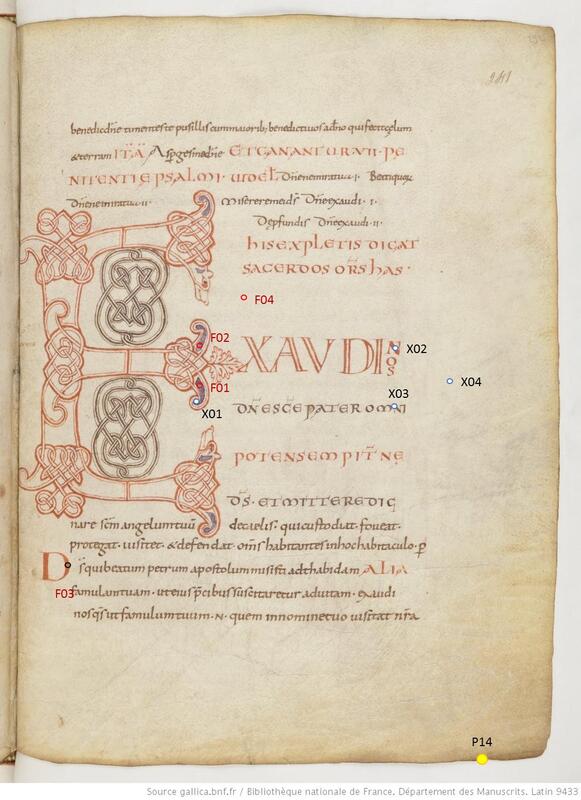 241
benedic dñe timentes te pusillis cum maiorib; benedicti uos a dño qui fecit cęlum
& terram ITA Asperges me dñe ET CANANTUR VII· PE
NITENTIĘ PSALMI·
Beati quor
Miserere mei ds
Dñe exaudi · I ·
De pfundis Dñe exaudi · II ·
HIS EXPLETIS DICAT
SACERDOS ORS HAS·
F04
F02
EXAUDI NOS
X02
F01
X04
X03
X01
DÑE SCE PATER OMNI
POTENS EMPIT NE
DS· ET MITTERE DIG
nare scm angelum tuũ de cęlis· qui custodiat foueat·
protegat· uisitet· & defendat· oms habitantes in hoc habitaculo· p
Ds qui beatum petrum apostolum misisti ad thabidam ALIA
F03
famulam tuam· ut eius pcibus suscitaretur ad uitam· exaudi
nos qs ut famulum tuum · N · quem in nomine tuo uisitat nra
P14
Source gallica.bnf.fr / Bibliothèque nationale de France. Département des Manuscrits. Latin 9433